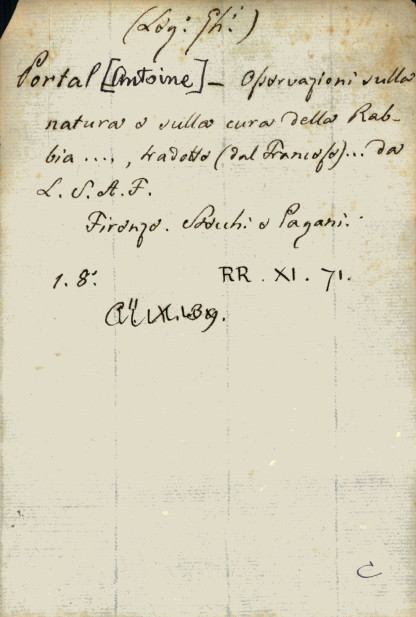 (Leg: Gh:)
Portal [Antoine] — Osservazioni sulla
natura e sulla cura della Rab-
bia ...., tradotte (dal Francese)... da
L. S. A. F.
Firenze. Pecchi e Pagani.
1. 8°.
RR. XI. 71.
IX. 139.
C